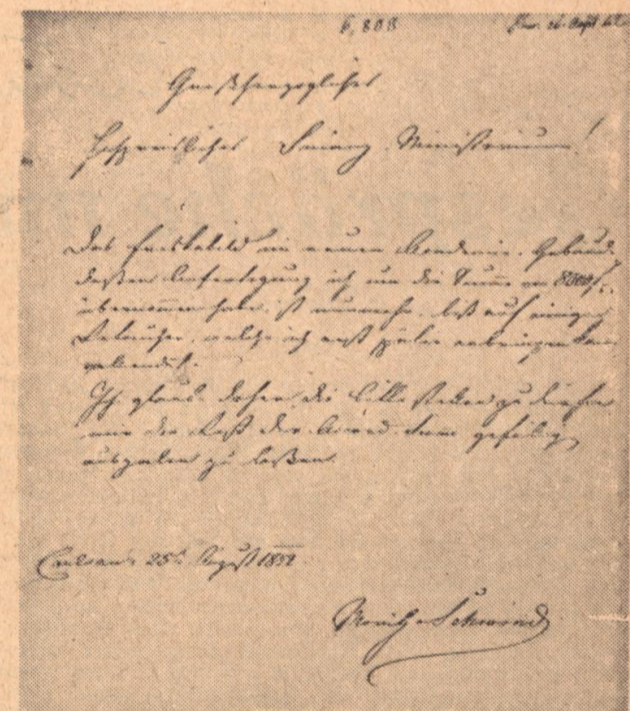 6,808
Großherzogliches
Hochpreisliches Finanz Ministerium!
Das Freskobild im neuen Academie-Gebäude
dessen Anfertigung ich um die Summe von 8000 f.
übernommen habe, ist nunmehr bis auf einige
welche ich erst später anbringen kann
vollendet.
Ich glaube daher die Bitte stellen zu dürfen
mir den Rest der Accord-Summe gefälligst
auszahlen zu lassen.
Carlsruhe 25t August 1842
Moritz v Schwind